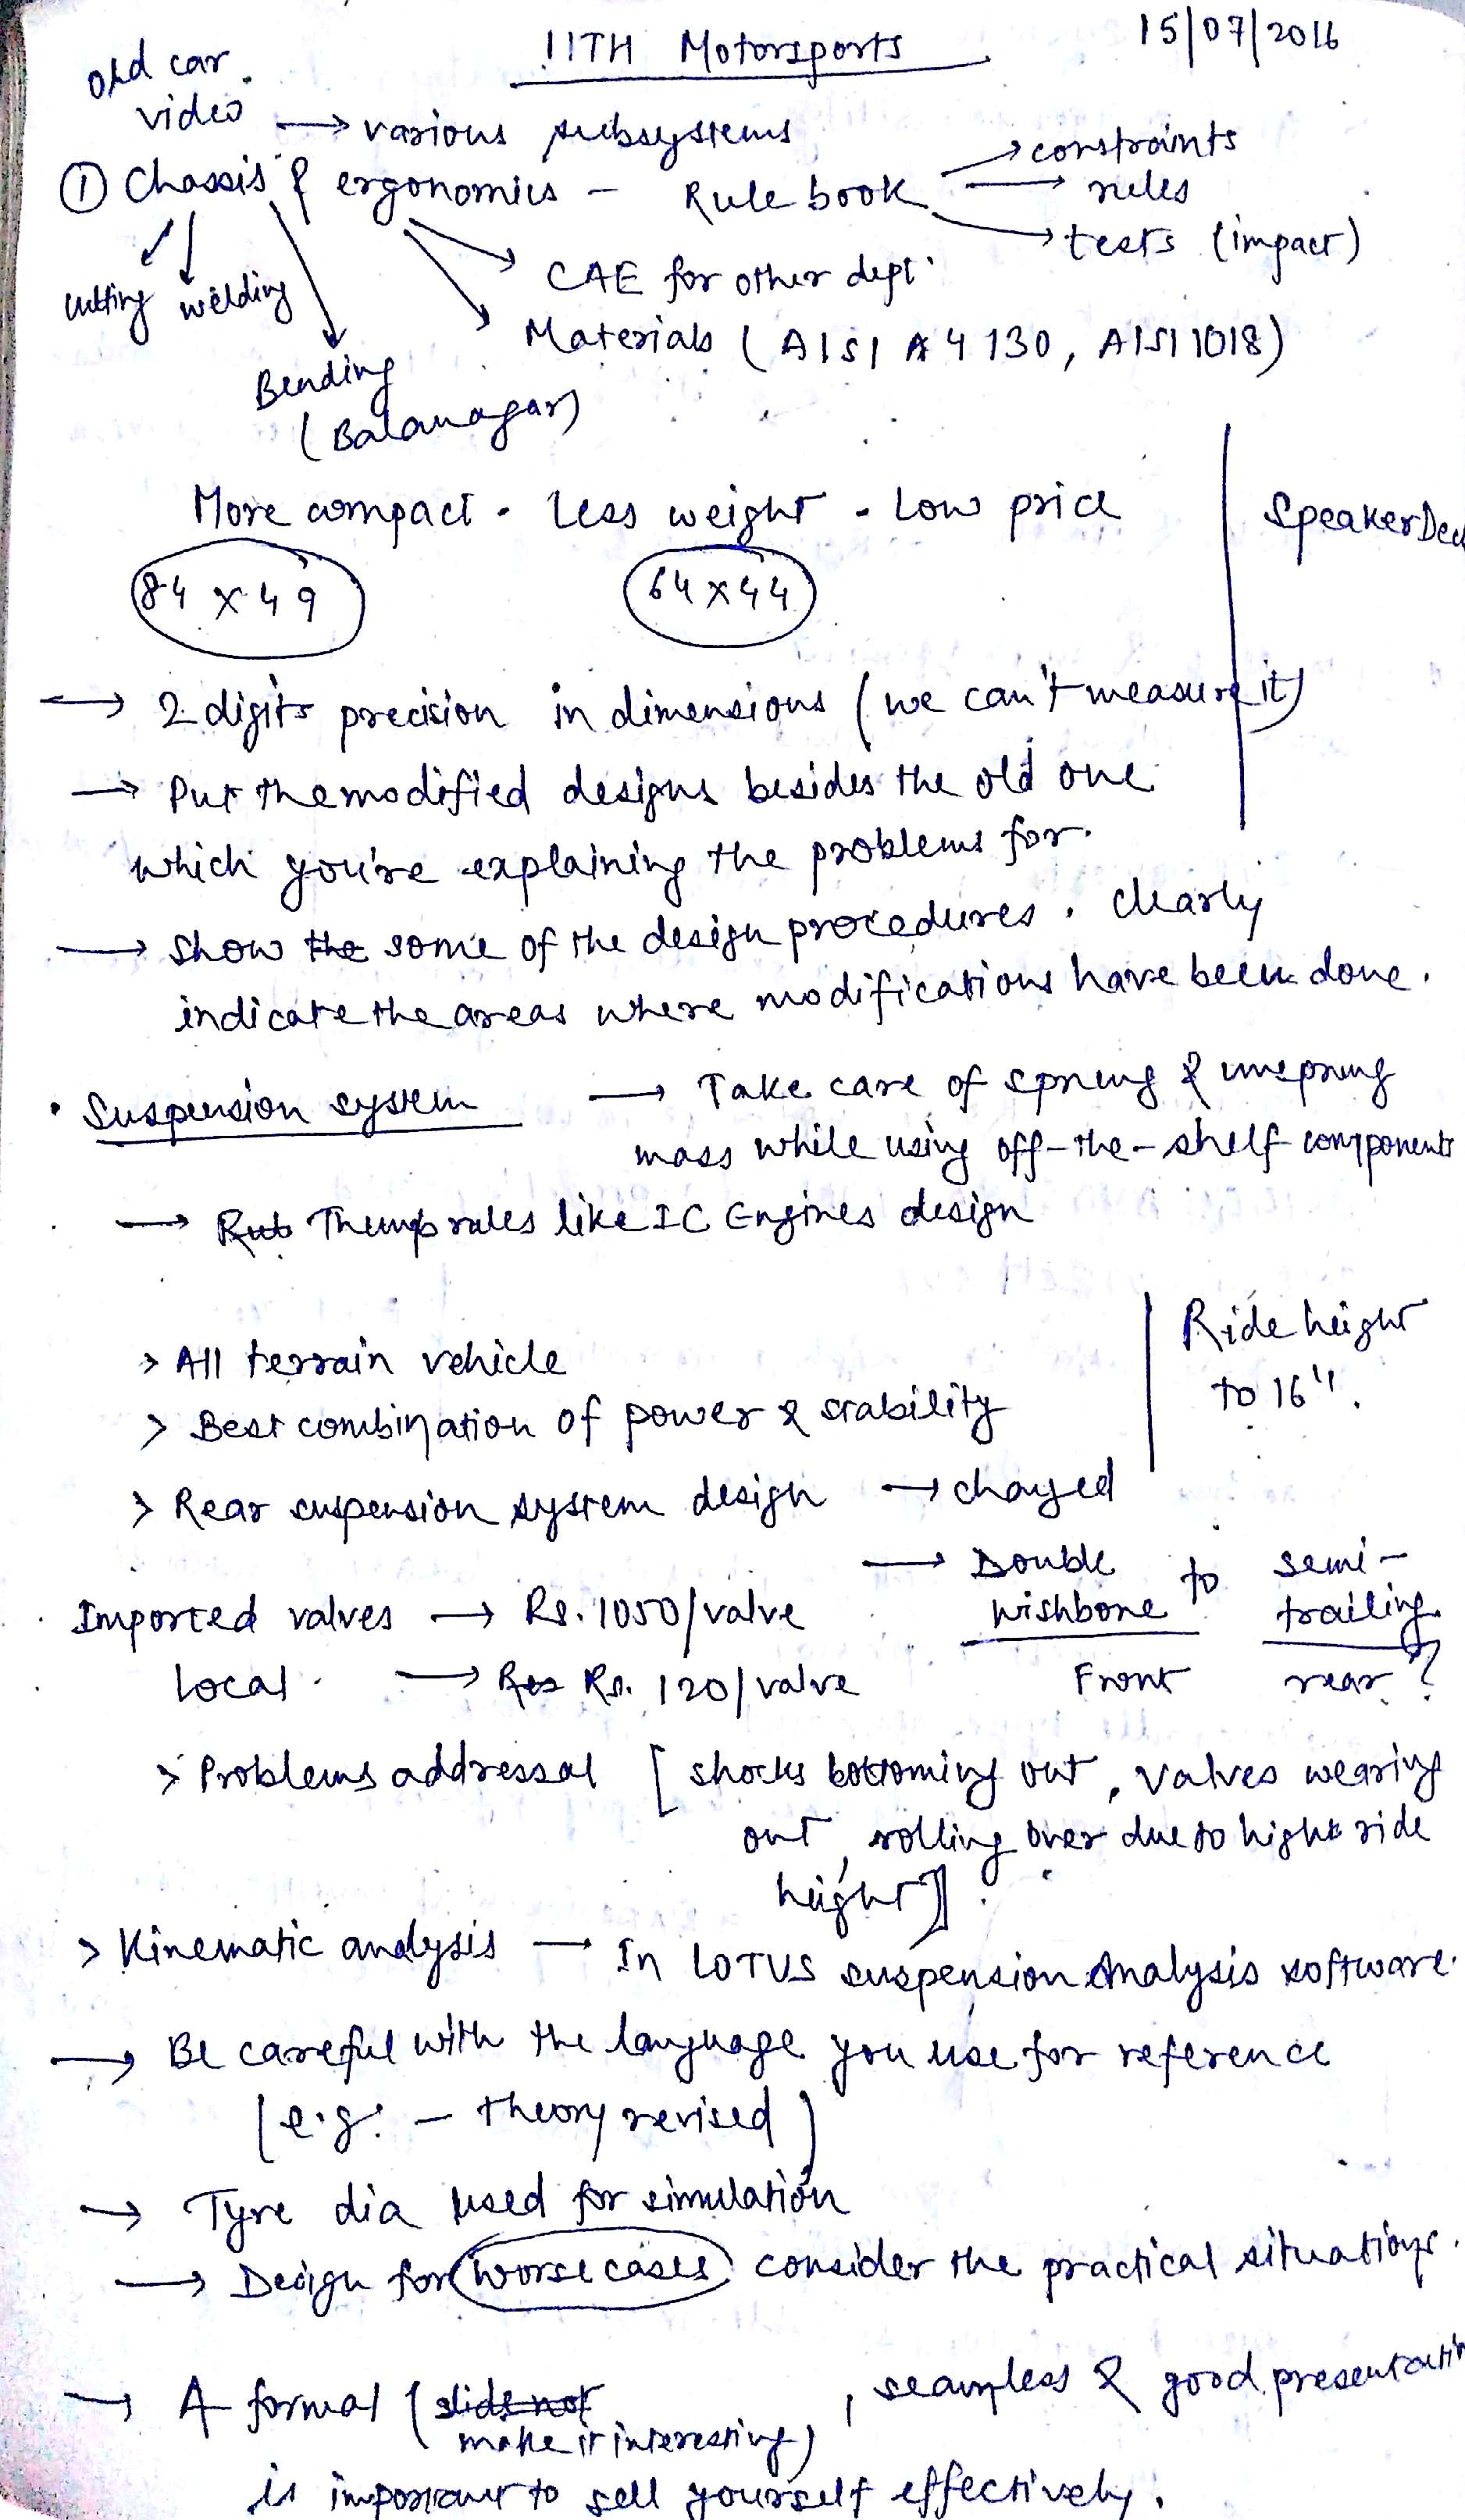 IITH Motorsports
15/07/2016
old car
video → various subsystems
① Chassis & ergonomics - Rule book → constraints
→ rules
→ tests (impact)
cutting welding
CAE for other dept.
Materials (AISI A 4130, AISI 1018)
Bending
(Balanagar)
More compact - Less weight - Low price
SpeakerDeck
84 x 49
64 x 44
→ 2 digits precision in dimensions (we can't measure it)
→ Put the modified designs besides the old one
which you're explaining the problems for.
→ Show the some of the design procedures. Clearly
indicate the areas where modifications have been done.
• Suspension system → Take care of sprung & unsprung
mass while using off-the-shelf components
→ Rub Thumb rules like IC Engines design
> All terrain vehicle
Ride height
to 16".
> Best combination of power & stability
> Rear suspension system design → changed
→ Double wishbone to semi-trailing
Front rear?
Imported valves → Rs. 1050/valve
local → Res Rs. 120/valve
> Problems addressal [shocks bottoming out, valves wearing
out, rolling over due to hight ride
height]
> Kinematic analysis → In LOTUS suspension Analysis software.
→ Be careful with the language you use for reference
(e.g. - theory revised)
→ Tyre dia used for simulation
→ Design for worse cases consider the practical situations.
→ A formal (slide not
make it interesting), seamless & good presentati
is important to sell yourself effectively.